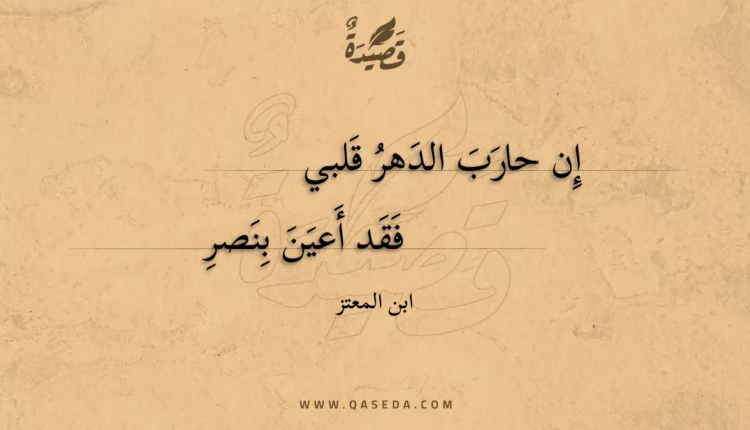 قَصِيدَةٌ
إِن حارَبَ الدَهرُ قَلبي
فَقَد أَعيَنَ بِنَصرِ
ابن المعتز
WWW.QASEDA.COM